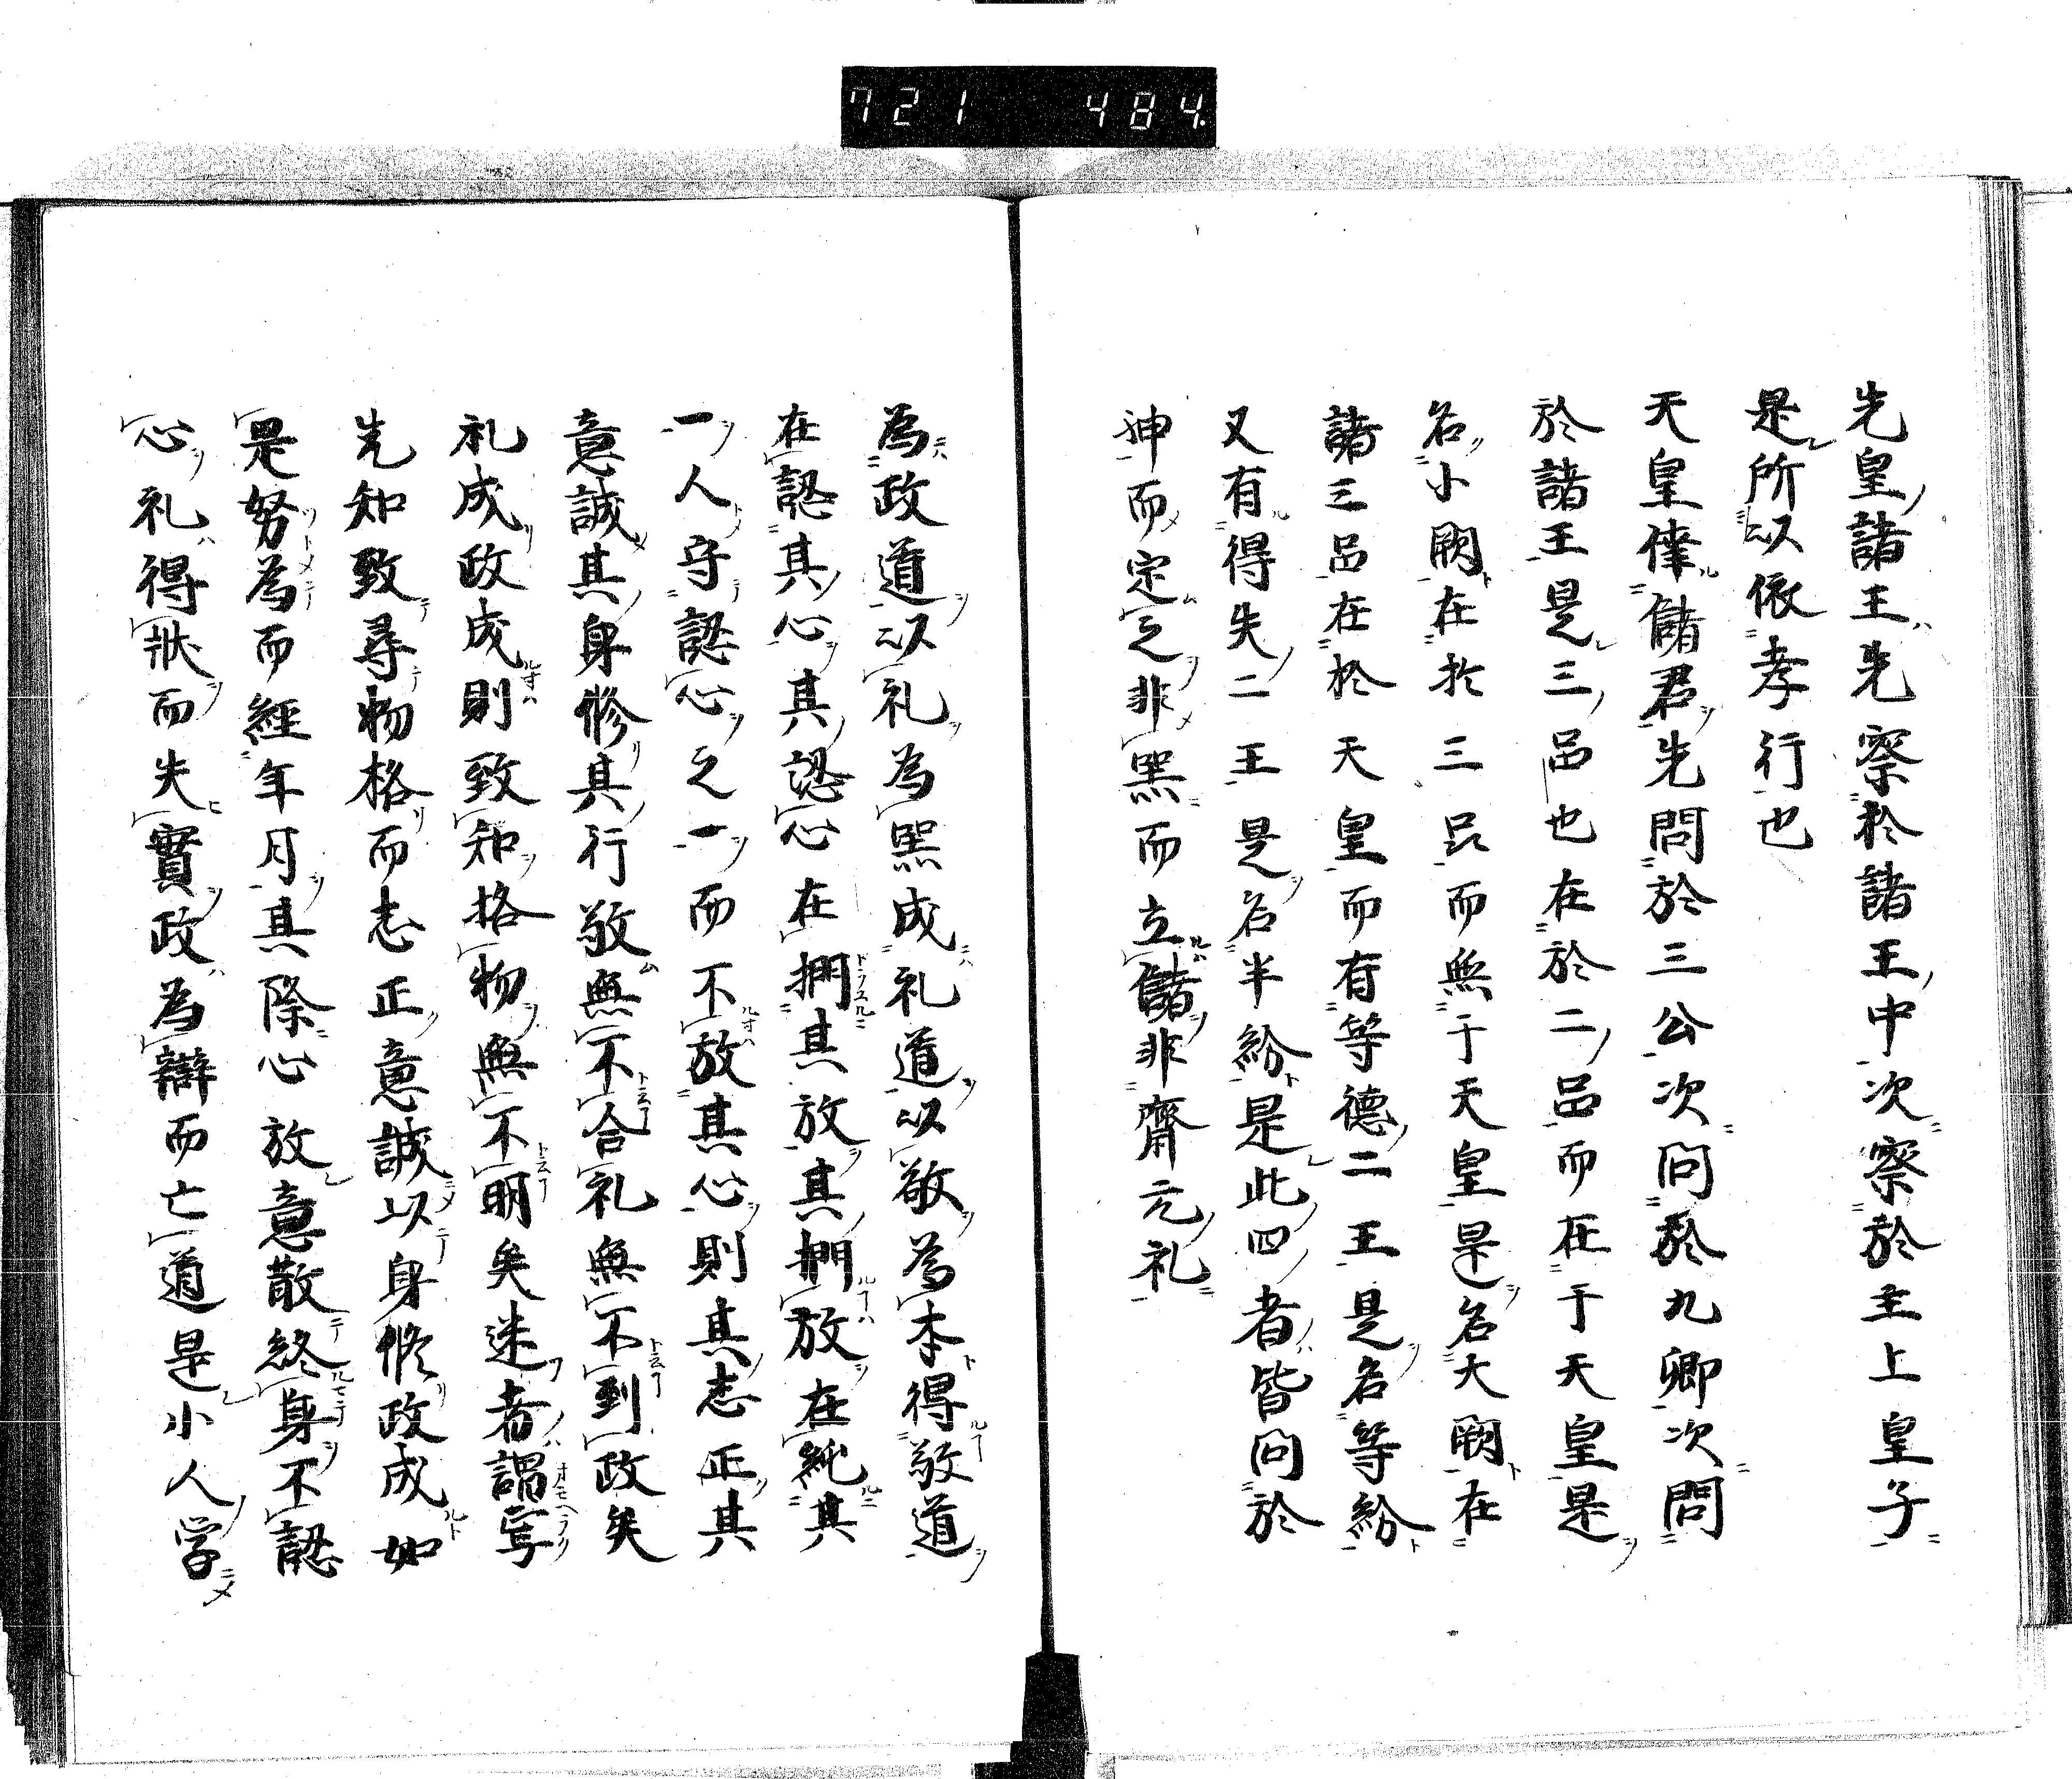 721 484
先皇諸王先察於諸王中次察於主上皇子
是所以依孝行也
天皇儲君先問於三公次問於九卿次問
於諸王是三品也在於二品而在于天皇是
名小闕在於三品而無于天皇是名大闕在
諸三品在於天皇而有等德二王是名等紛
又有得失二王是名半紛是此四者皆問於
神而定之非黑而立儲非齋元礼
為政道以礼為黑成礼道以敬為本得敬道
在認其心其認心在捫其放其捫放在純其
一人守認心之一而不放其心則其志正其
意誠其身修其行敬無不合礼無不到政矣
礼成政成則致知格物無不明矣迷者謂寧
先知致尋物格而志正意誠以身修政成如
是努為而經年月其際心放意散終身不認
心礼得狀而失實政為辯而亡道是小人学